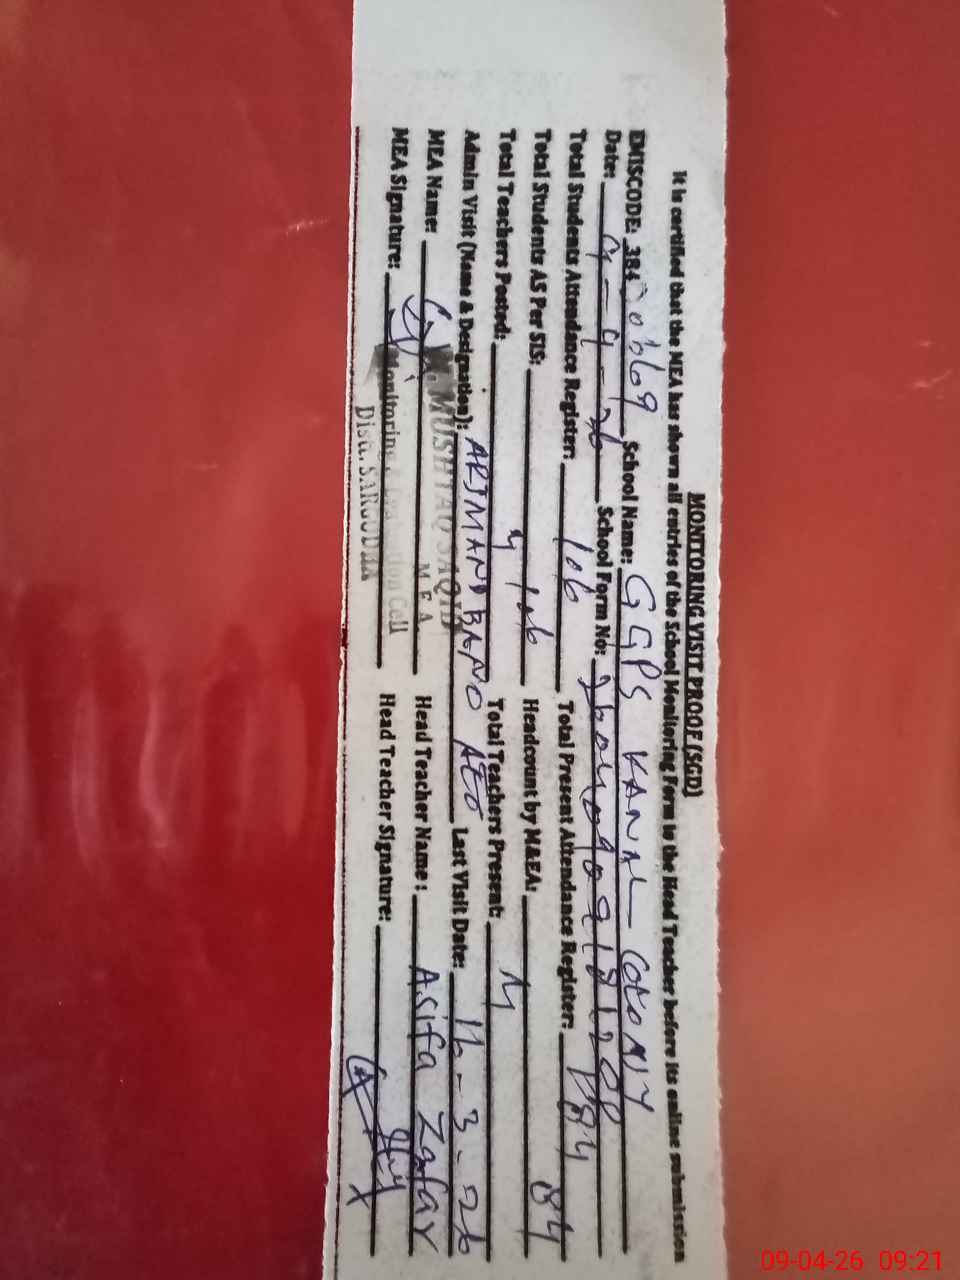 MONITORING VISIT PROOF (SGD)
It is certified that the MEA has shown all entries of the School Monitoring Form to the Head Teacher before its online submission
EMISCODE: 384 School Name: GGPS KANAL COLONY
Date: 9-4-26 School Form No:
Total Students Attendance Register: 106 Total Present Attendance Register: 84
Total Students AS Per SIS: 106 Headcount by M&EA: 84
Total Teachers Posted: 4 Total Teachers Present: 4
Admin Visit (Name & Designation): ARJMAND BANO AEO Last Visit Date: 16-3-26
MEA Name: MUSHTAQ SAQIB Head Teacher Name: Asifa Zafar
M E A
MEA Signature: Head Teacher Signature:
Monitoring & Evaluation Cell
Distt. SARGODHA
09-04-26 09:21